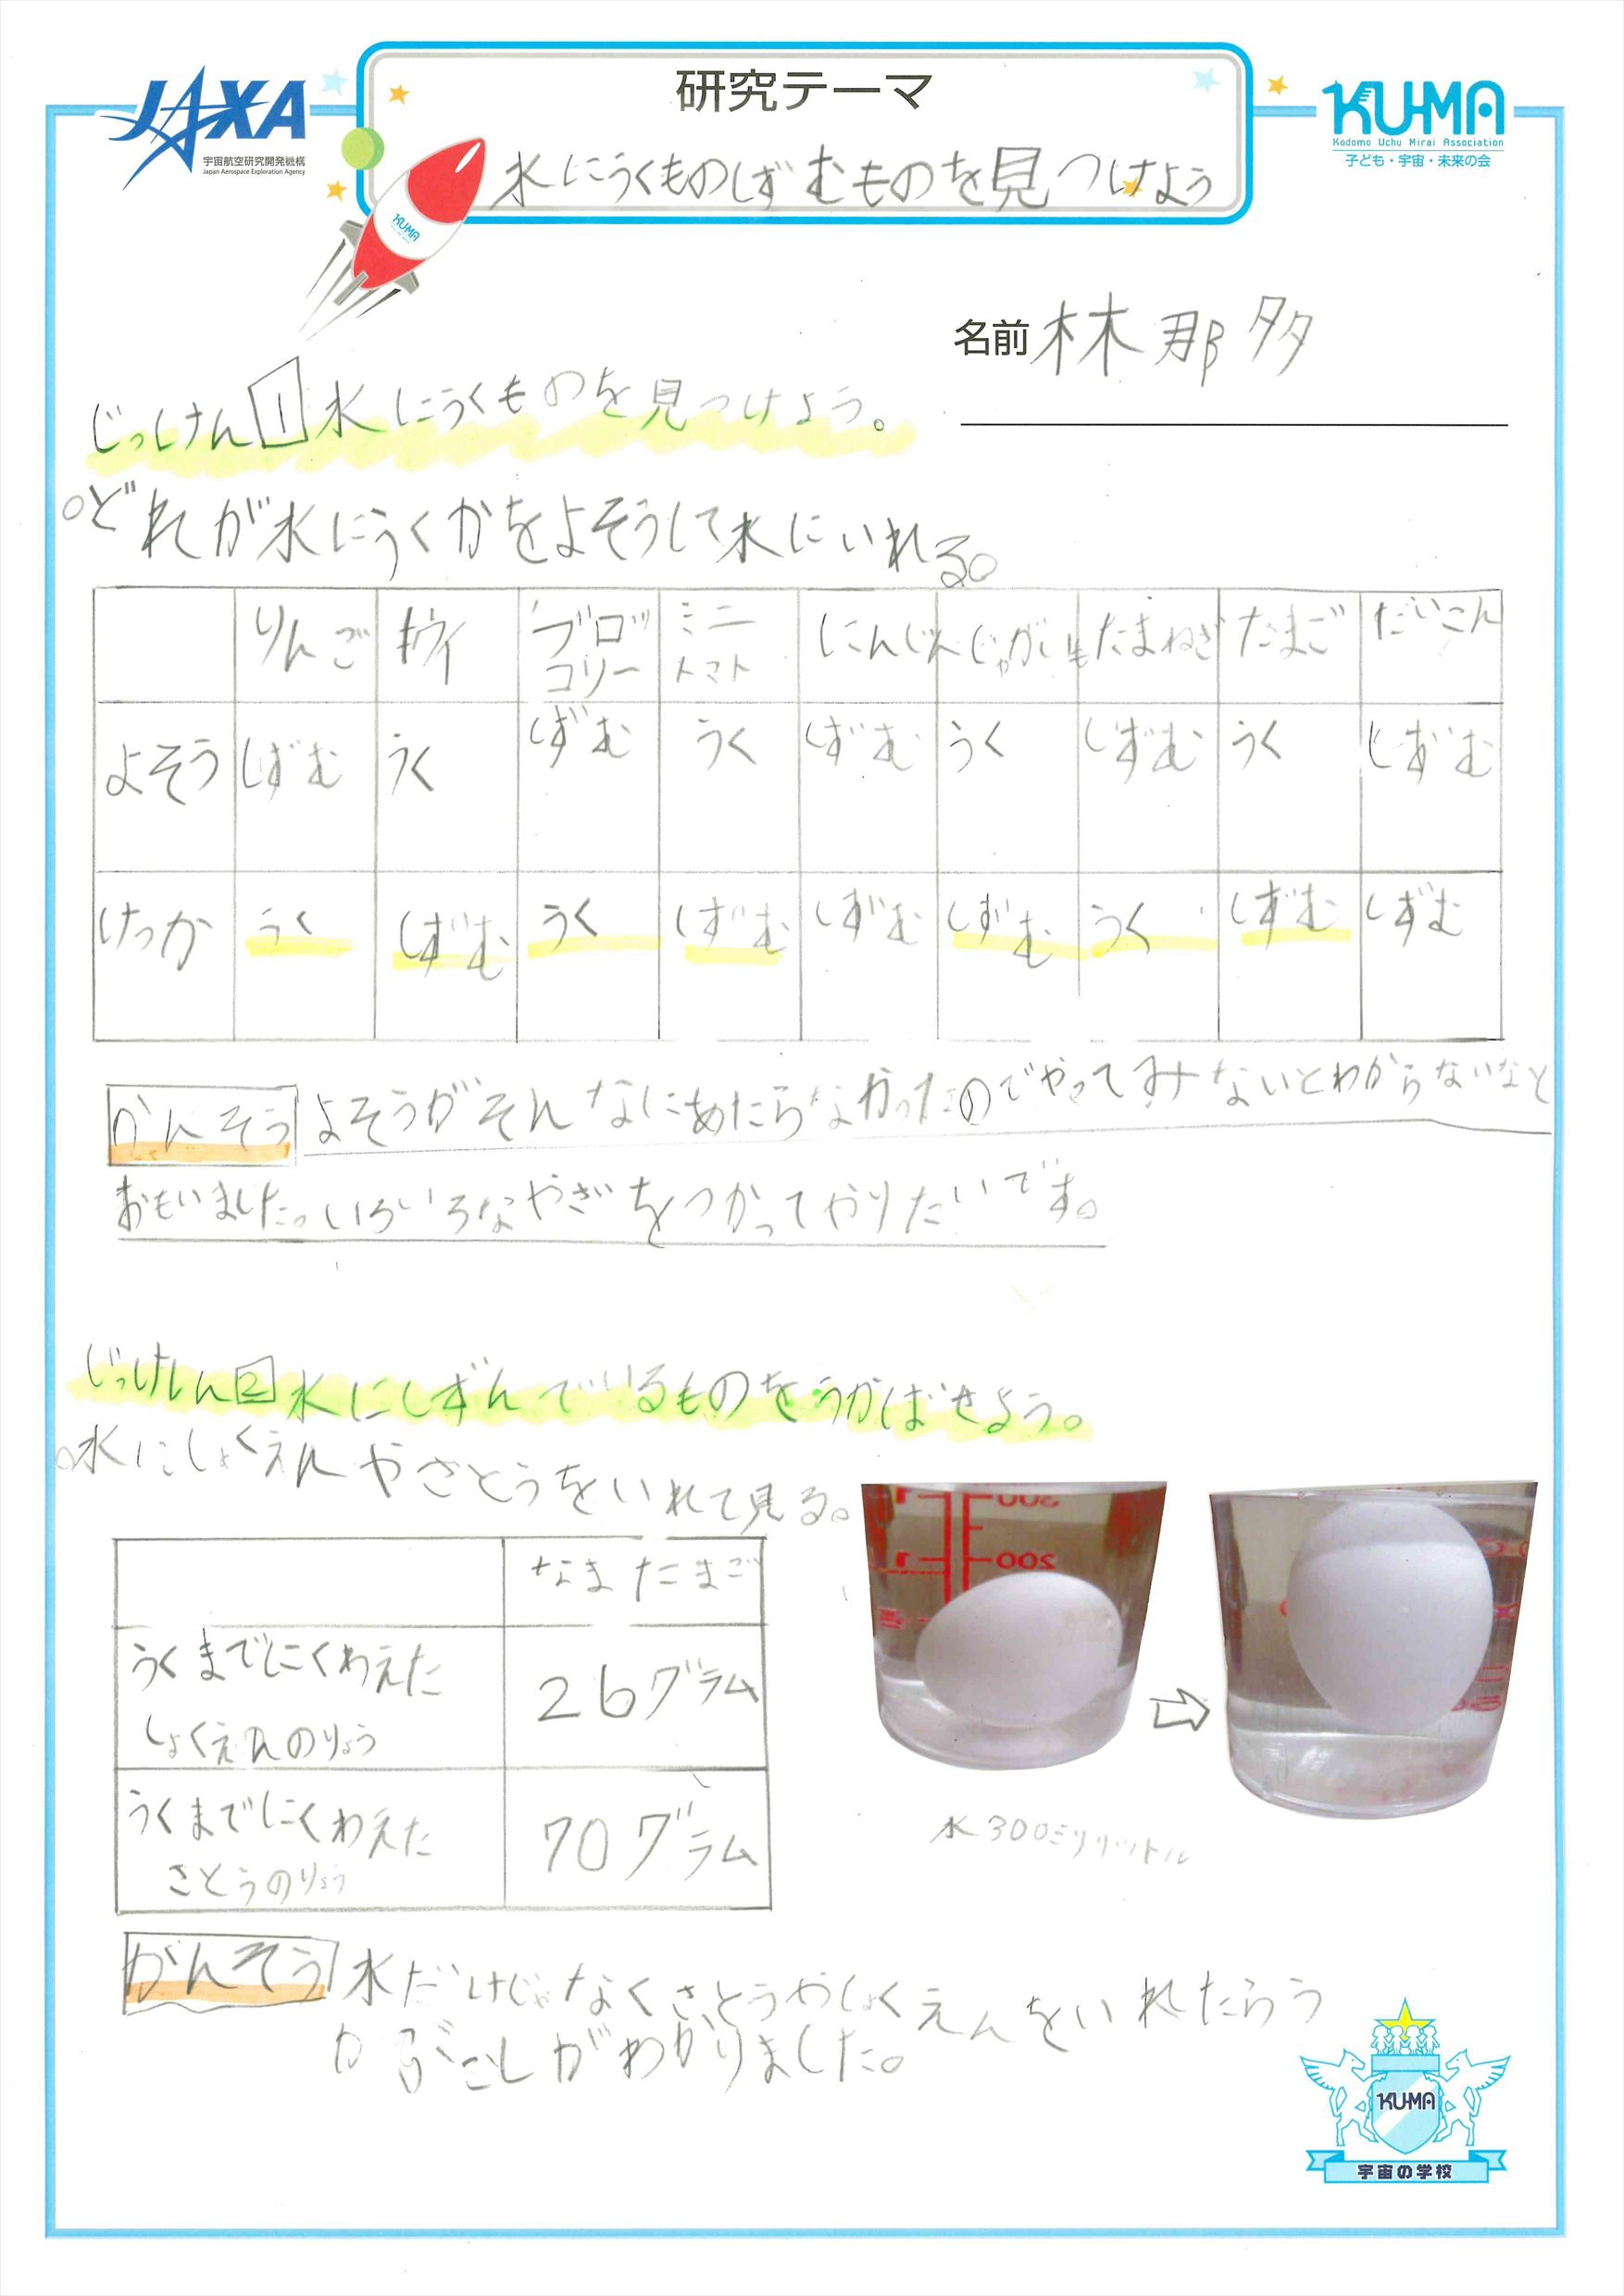 JAXA
宇宙航空研究開発機構
Japan Aerospace Exploration Agency
研究テーマ
水にうくものしずむものを見つけよう
KU-MA
Kodomo Uchu Mirai Association
子ども・宇宙・未来の会
KU-MA
名前 林那多
じっけん1水にうくものを見つけよう。
○どれが水にうくかをよそうして水にいれる。
りんご キウイ ブロッコリー ミニトマト にんじん じゃがいも たまねぎ たまご だいこん
よそう しずむ うく しずむ うく しずむ うく しずむ うく しずむ
けっか うく しずむ うく しずむ しずむ しずむ うく しずむ しずむ
かんそう よそうがそんなにあたらなかったのでやってみないとわからないなと
おもいました。いろいろなやさいをつかってやりたいです。
じっけん2水にしずんでいるものをうかばせよう。
○水にしょくえんやさとうをいれて見る。
なまたまご
うくまでにくわえた
しょくえんのりょう
26グラム
うくまでにくわえた
さとうのりょう
70グラム
200
水300ミリリットル
かんそう 水だけじゃなくさとうやしょくえんをいれたらう
かぶことがわかりました。
KU-MA
宇宙の学校